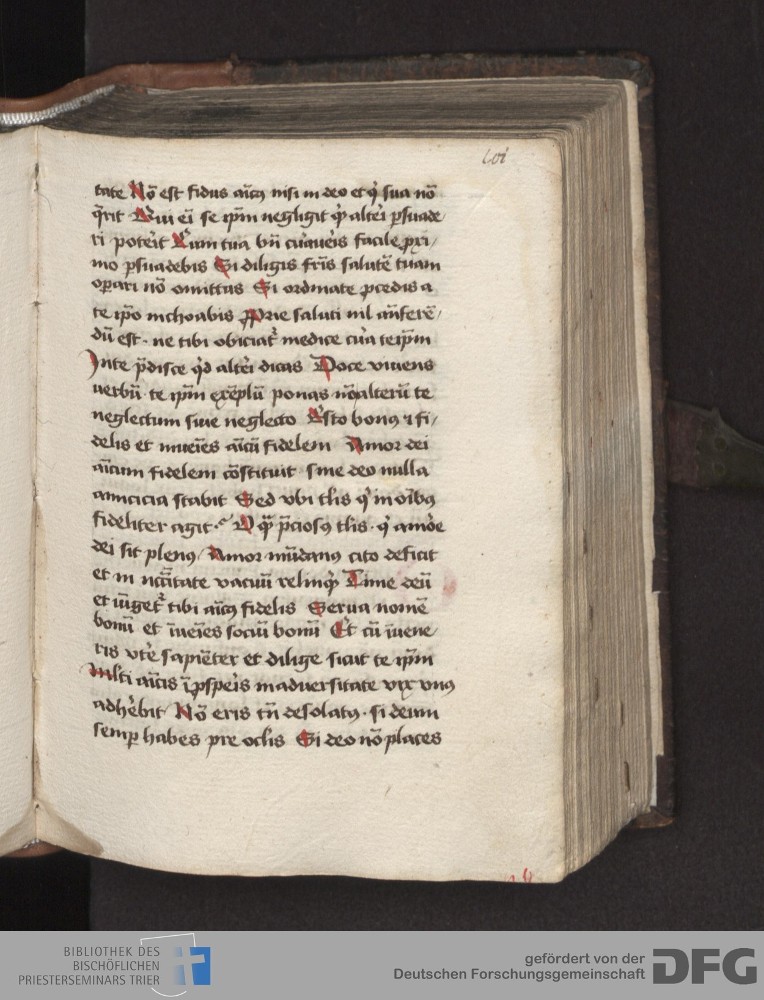 lvi
tate Nō est fidus aīcꝯ nisi in deo et q̇ sua nō
q̄rit Qui eī se ip̄m negligit q̇ alteri p̲suade
ri poterit Cum tua bn̄ curaueris facile ꝓxi/
mo p̲suadebis Si diligis fr̄is salutē tuam
op̲ari nō omittas Si ordinate ꝓcedis a
te ip̄o inchoabis Pprie saluti nil anferē/
dū est · ne tibi obiciat᷑ medice cura teip̄m
In te p̄disce qd̄ alteri dicas Doce viuens
uerbū · te ip̄m exēplū ponas nō alterū te
neglectum siue neglecto Esto bonꝯ ⁊ fi/
delis et inueīes aīcū fidelem Amor dei
aīcum fidelem cōstituit sine deo nulla
amicicia stabit Sed vbi tl̄is q̇ in oībꝯ
fideliter agit · O q̄ p̄ciosꝯ tl̄is · q̇ amōe
dei sit plenꝯ / Amor mūdanꝯ cito deficit
et in nc̄c̄itate vacuū relinq̇t Time deū
et iūget᷑ tibi aīcꝯ fidelis Serua nomē
bonū et īueīes sociū bonū Et cū īuene
ris vtē sapiēter et dilige sicut te ip̄m
Mlti aīcis ī ꝓsp̲is in aduersitate vix vnꝯ
adhēbit Nō eris tn̄ desolatꝯ · si deum
semp̲ habes pre oclīs Si deo nō places
BIBLIOTHEK DES
BISCHÖFLICHEN
PRIESTERSEMINARS TRIER
gefördert von der
Deutschen Forschungsgemeinschaft
DFG